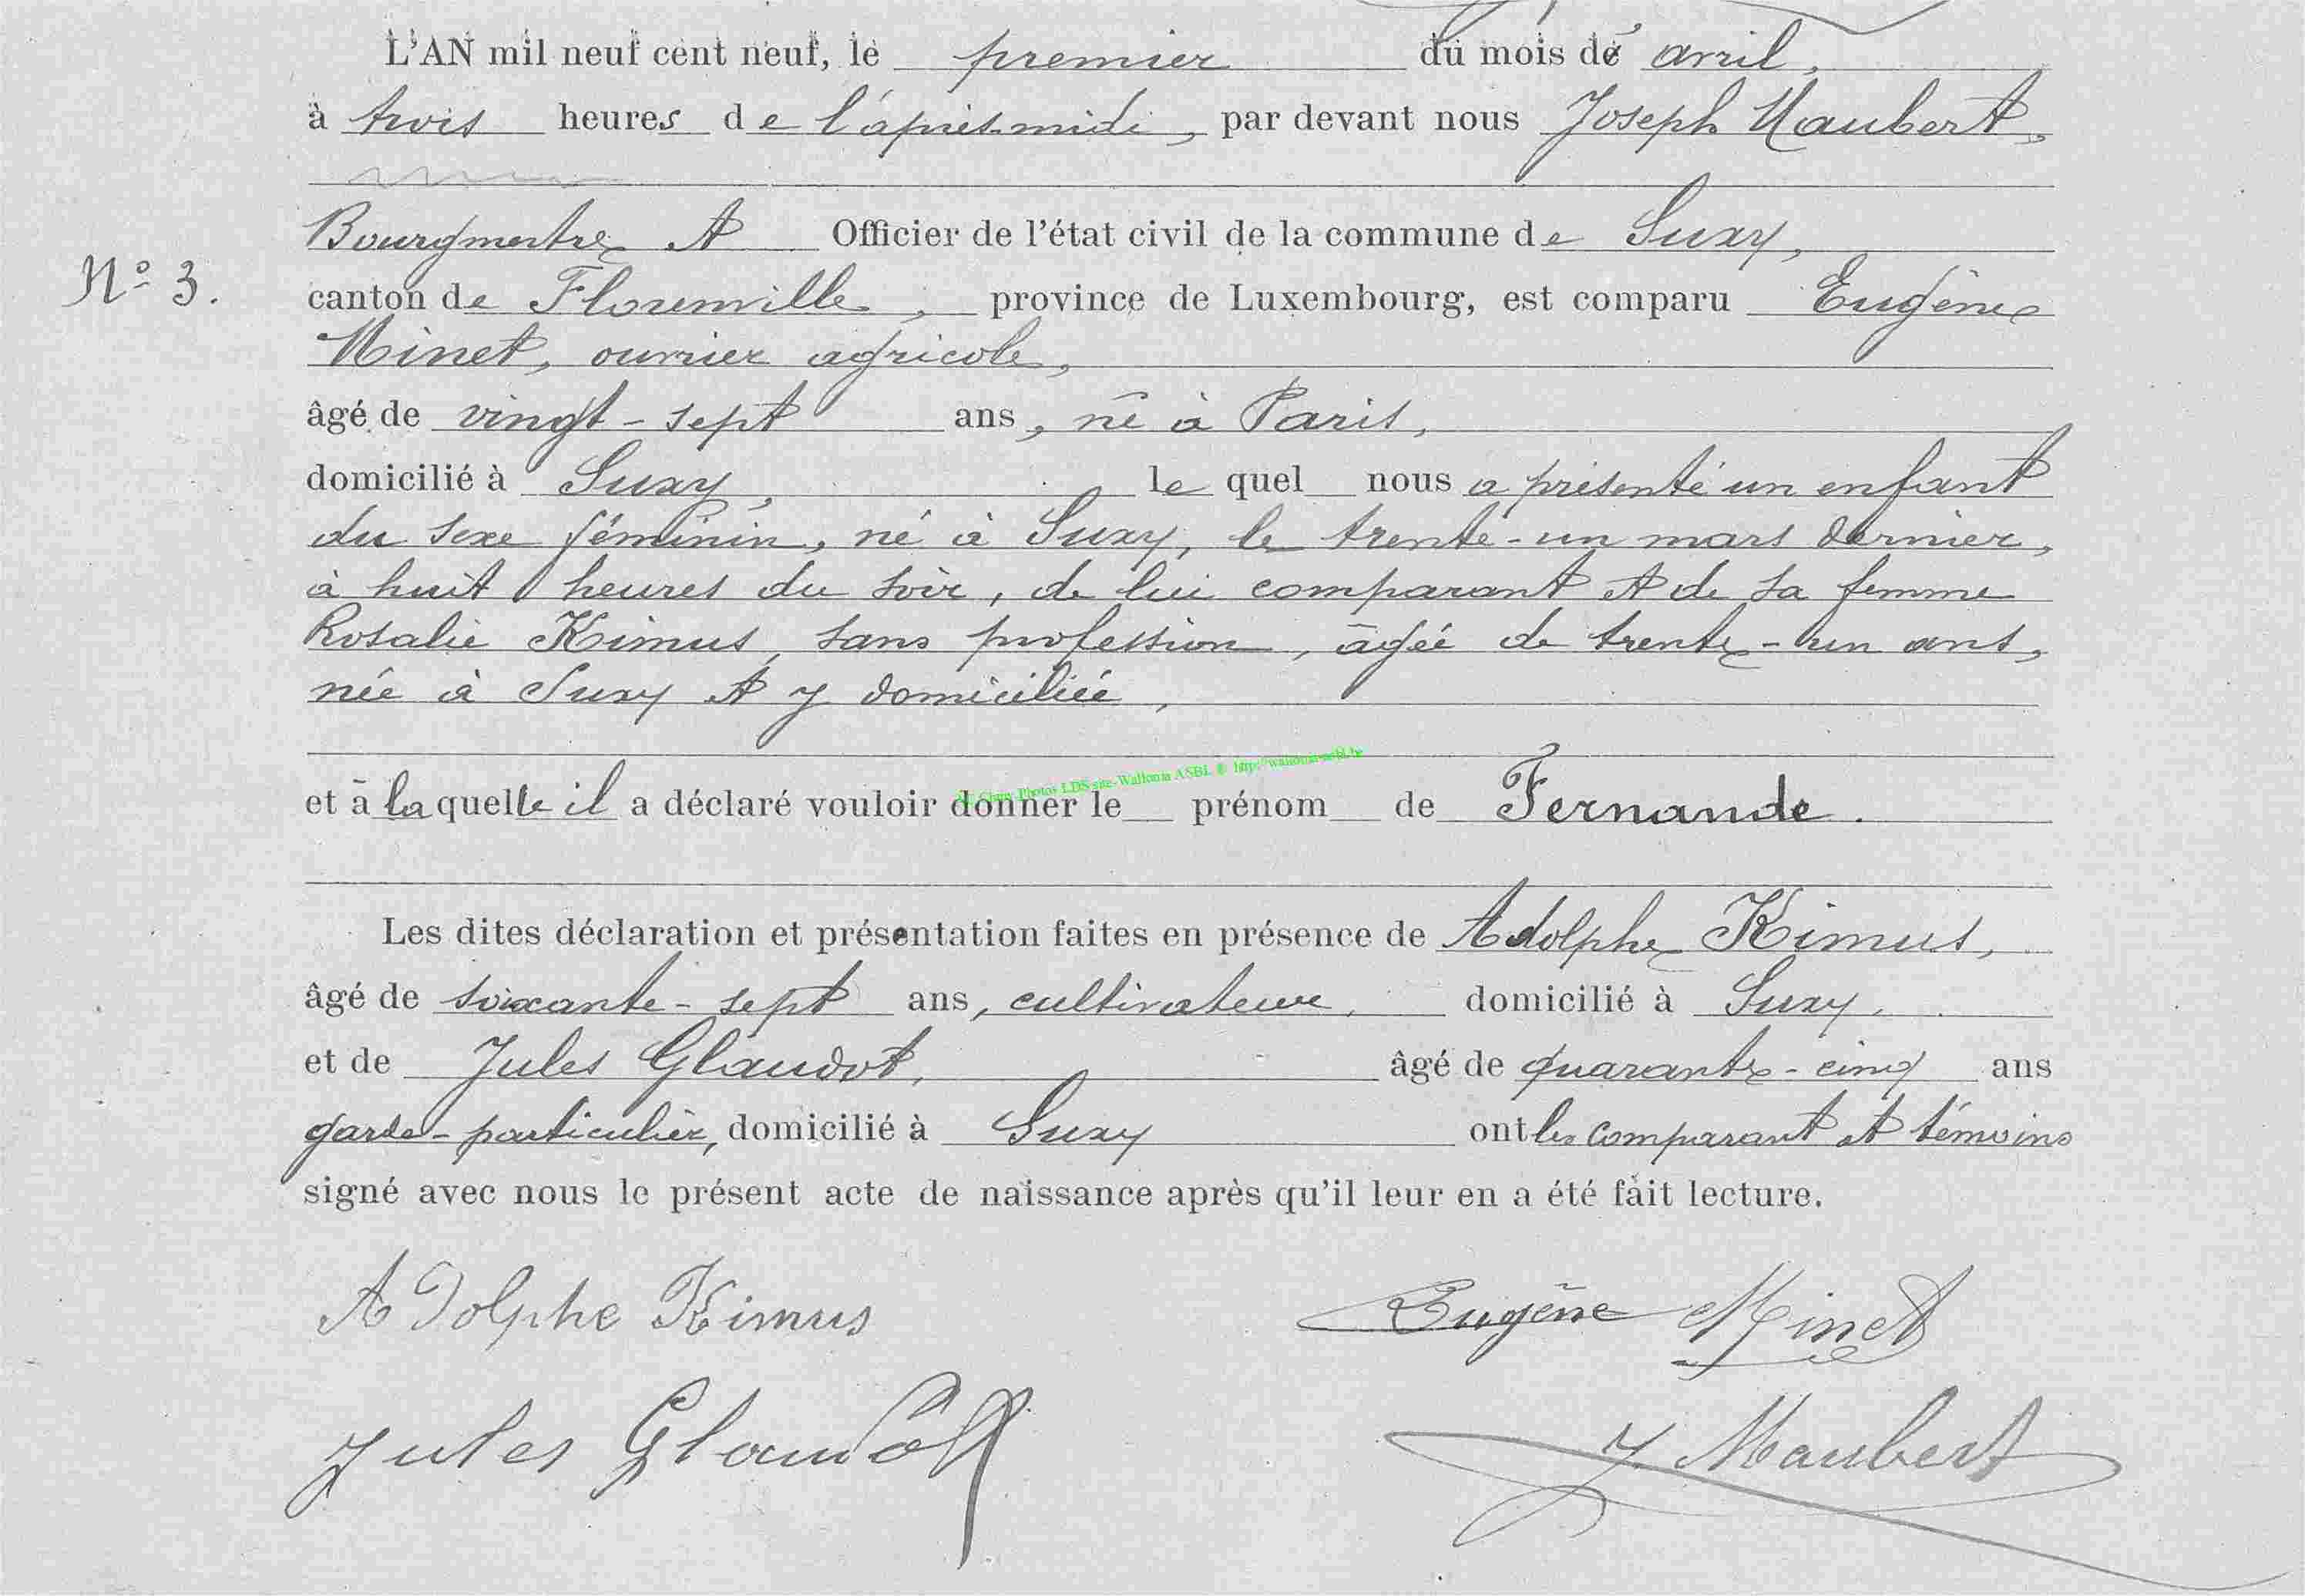 L'AN mil neuf cent neuf, le premier du mois de avril,
à trois heures de l'après-midi, par devant nous Joseph Maubert,
Bourgmestre et Officier de l'état civil de la commune de Suxy,
N° 3.
canton de Florenville, province de Luxembourg, est comparu Eugène
Minet, ouvrier agricole,
âgé de vingt-sept ans, né à Paris,
domicilié à Suxy, lequel nous a présenté un enfant
du sexe féminin, né à Suxy, le trente-un mars dernier,
à huit heures du soir, de lui comparant et de sa femme
Rosalie Kimus, sans profession, âgée de trente-un ans,
née à Suxy et y domiciliée,
Photos LDS site-Wallonia ASBL ® http://wallonia-asbl.be
et à laquelle il a déclaré vouloir donner le prénom de Fernande.
Les dites déclaration et présentation faites en présence de Adolphe Kimus,
âgé de soixante-sept ans, cultivateur, domicilié à Suxy,
et de Jules Glaudot, âgé de quarante-cinq ans
garde-particulier, domicilié à Suxy ont les comparant et témoins
signé avec nous le présent acte de naissance après qu'il leur en a été fait lecture.
Adolphe Kimus Eugène Minet
Jules Glaudot J. Maubert